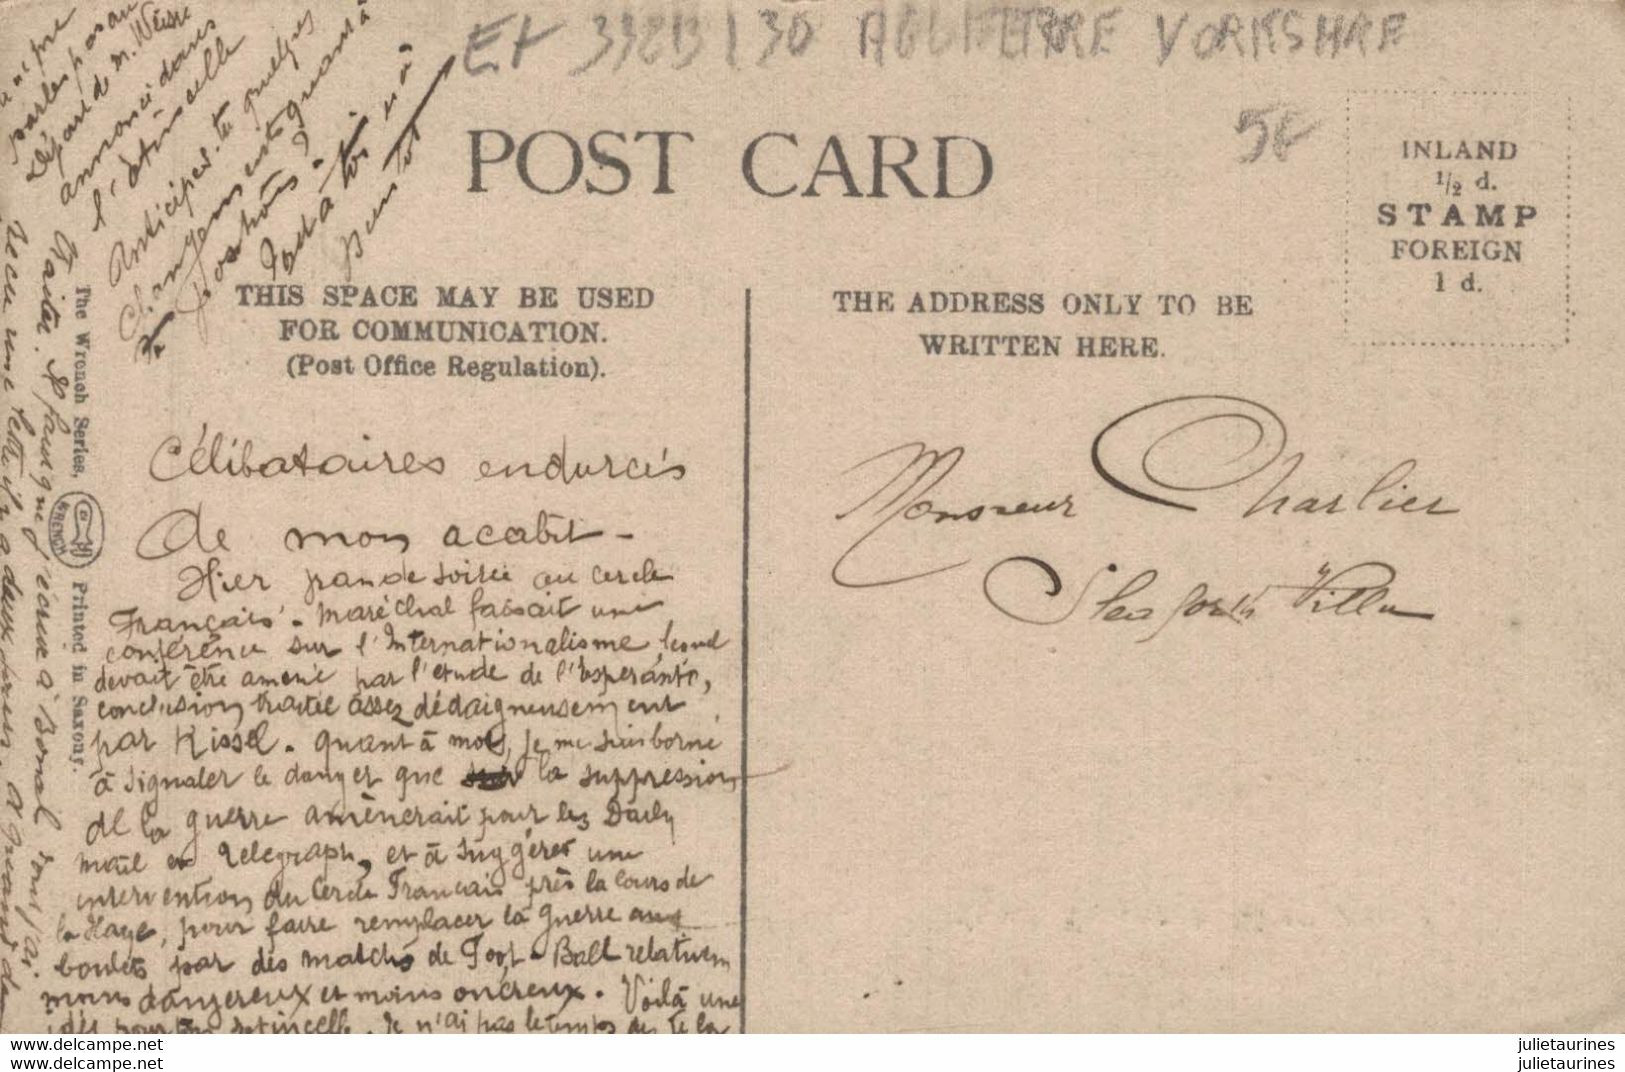 Et 332B / 30 AGLITERRE YORKSHIRE
5F
POST CARD
INLAND
1/2 d.
STAMP
FOREIGN
1 d.
THIS SPACE MAY BE USED
FOR COMMUNICATION.
(Post Office Regulation).
THE ADDRESS ONLY TO BE
WRITTEN HERE.
Monsieur Charlier
Villa
Célibataires endurcis
De mon acabit -
Hier grande soirée au cercle
Français - Maréchal faisait une
conférence sur l'Internationalisme, lequel
devait être amené par l'étude de l'Esperanto,
conclusion traitée assez dédaigneusement
par Kissel. Quant à moi, je me suis borné
à signaler le danger que la suppression
de la guerre amènerait pour les Daily
Mail et Telegraph, et à suggérer une
intervention du Cercle Français près la cours de
la Haye, pour faire remplacer la guerre aux
boulets par des matchs de Foot-Ball relativem
moins dangereux et moins onéreux. Voilà une
idée pour ton étincelle. Je n'ai pas le temps de te la
traiter. Il faut que j'écrive à Bonal dont j'ai
recu une lettre il y a deux jours.
parles pas au
départ de M.
annoncé dans
l'étincelle
Anticipes-tu quelques
changements quant à
Tout à toi
The Wrench Series,
WRENCH
Printed in Saxony.
www.delcampe.net
www.delcampe.net
julietaurines
julietaurines